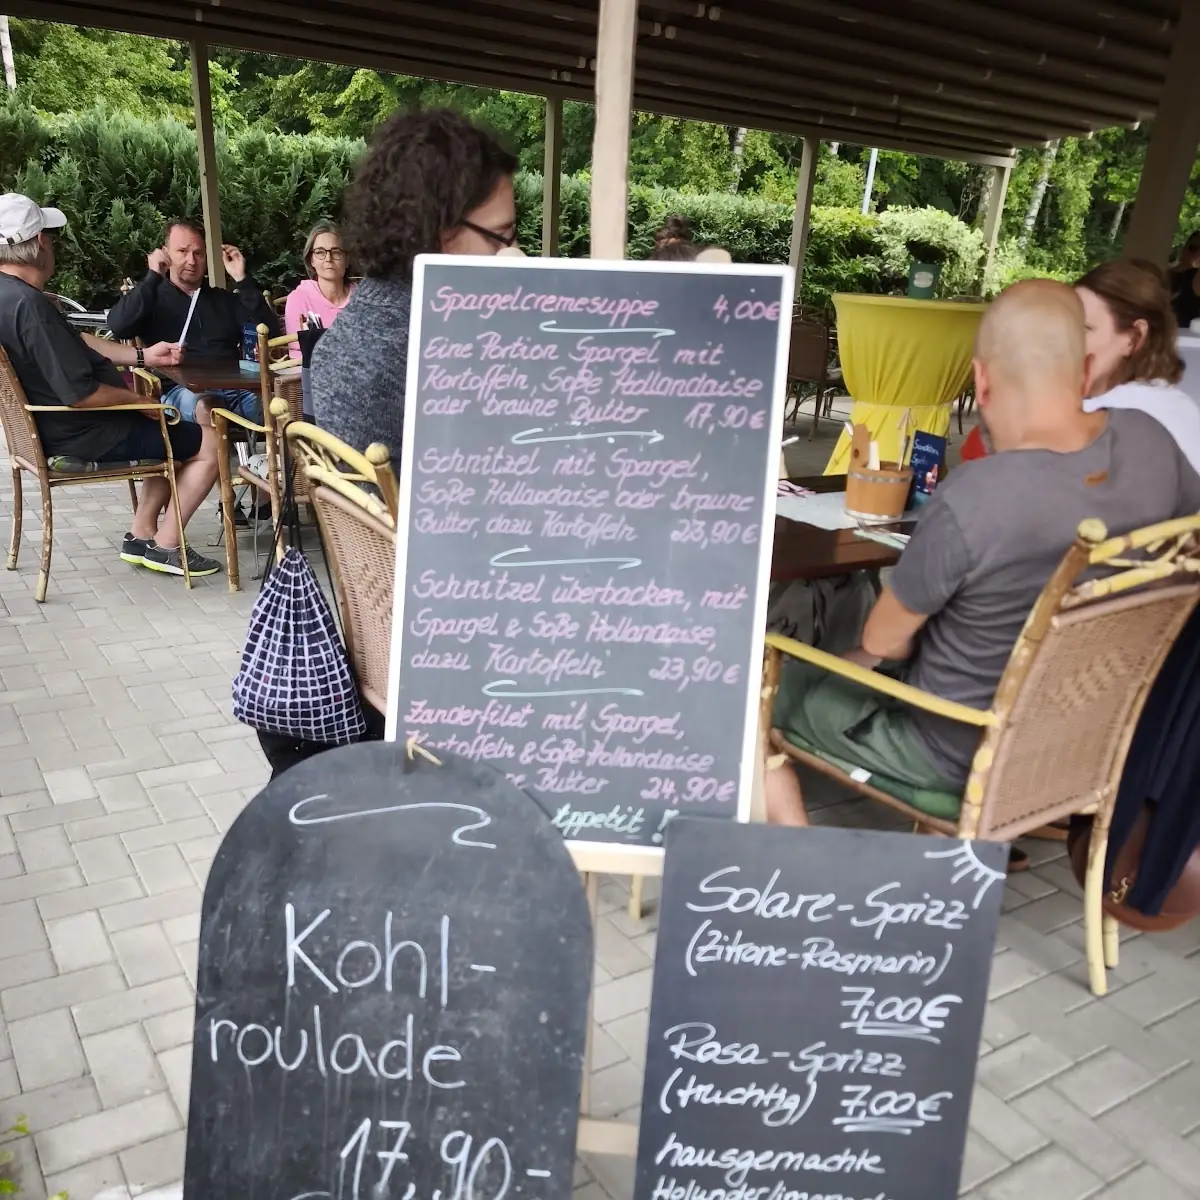 Spargelcremesuppe 4,00€
Eine Portion Spargel mit
Kartoffeln, Soße Hollandaise
oder braune Butter 17,90€
Schnitzel mit Spargel,
Soße Hollandaise oder braune
Butter, dazu Kartoffeln 23,90€
Schnitzel überbacken, mit
Spargel & Soße Hollandaise,
dazu Kartoffeln 23,90€
Zanderfilet mit Spargel,
Kartoffeln & Soße Hollandaise
Butter 24,90€
Appetit !
Kohl-
roulade
17,90-
Solare-Sprizz
(Zitrone-Rosmarin)
7,00€
Rosa-Sprizz
(fruchtig) 7,00€
hausgemachte
Holunderlimonade